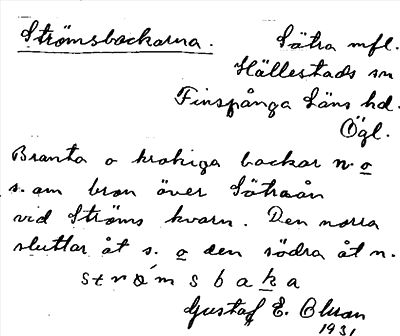 Strömsbackarna.
Sätra mfl.
Hällestads sn
Finspånga läns hd.
Ögl.
Branta o krokiga backar n. o
s. om bron över Sätraån
vid Ströms kvarn. Den norra
sluttar åt s. o den södra åt n.
strö́msbaka
Gustaf E. Olsson
1931